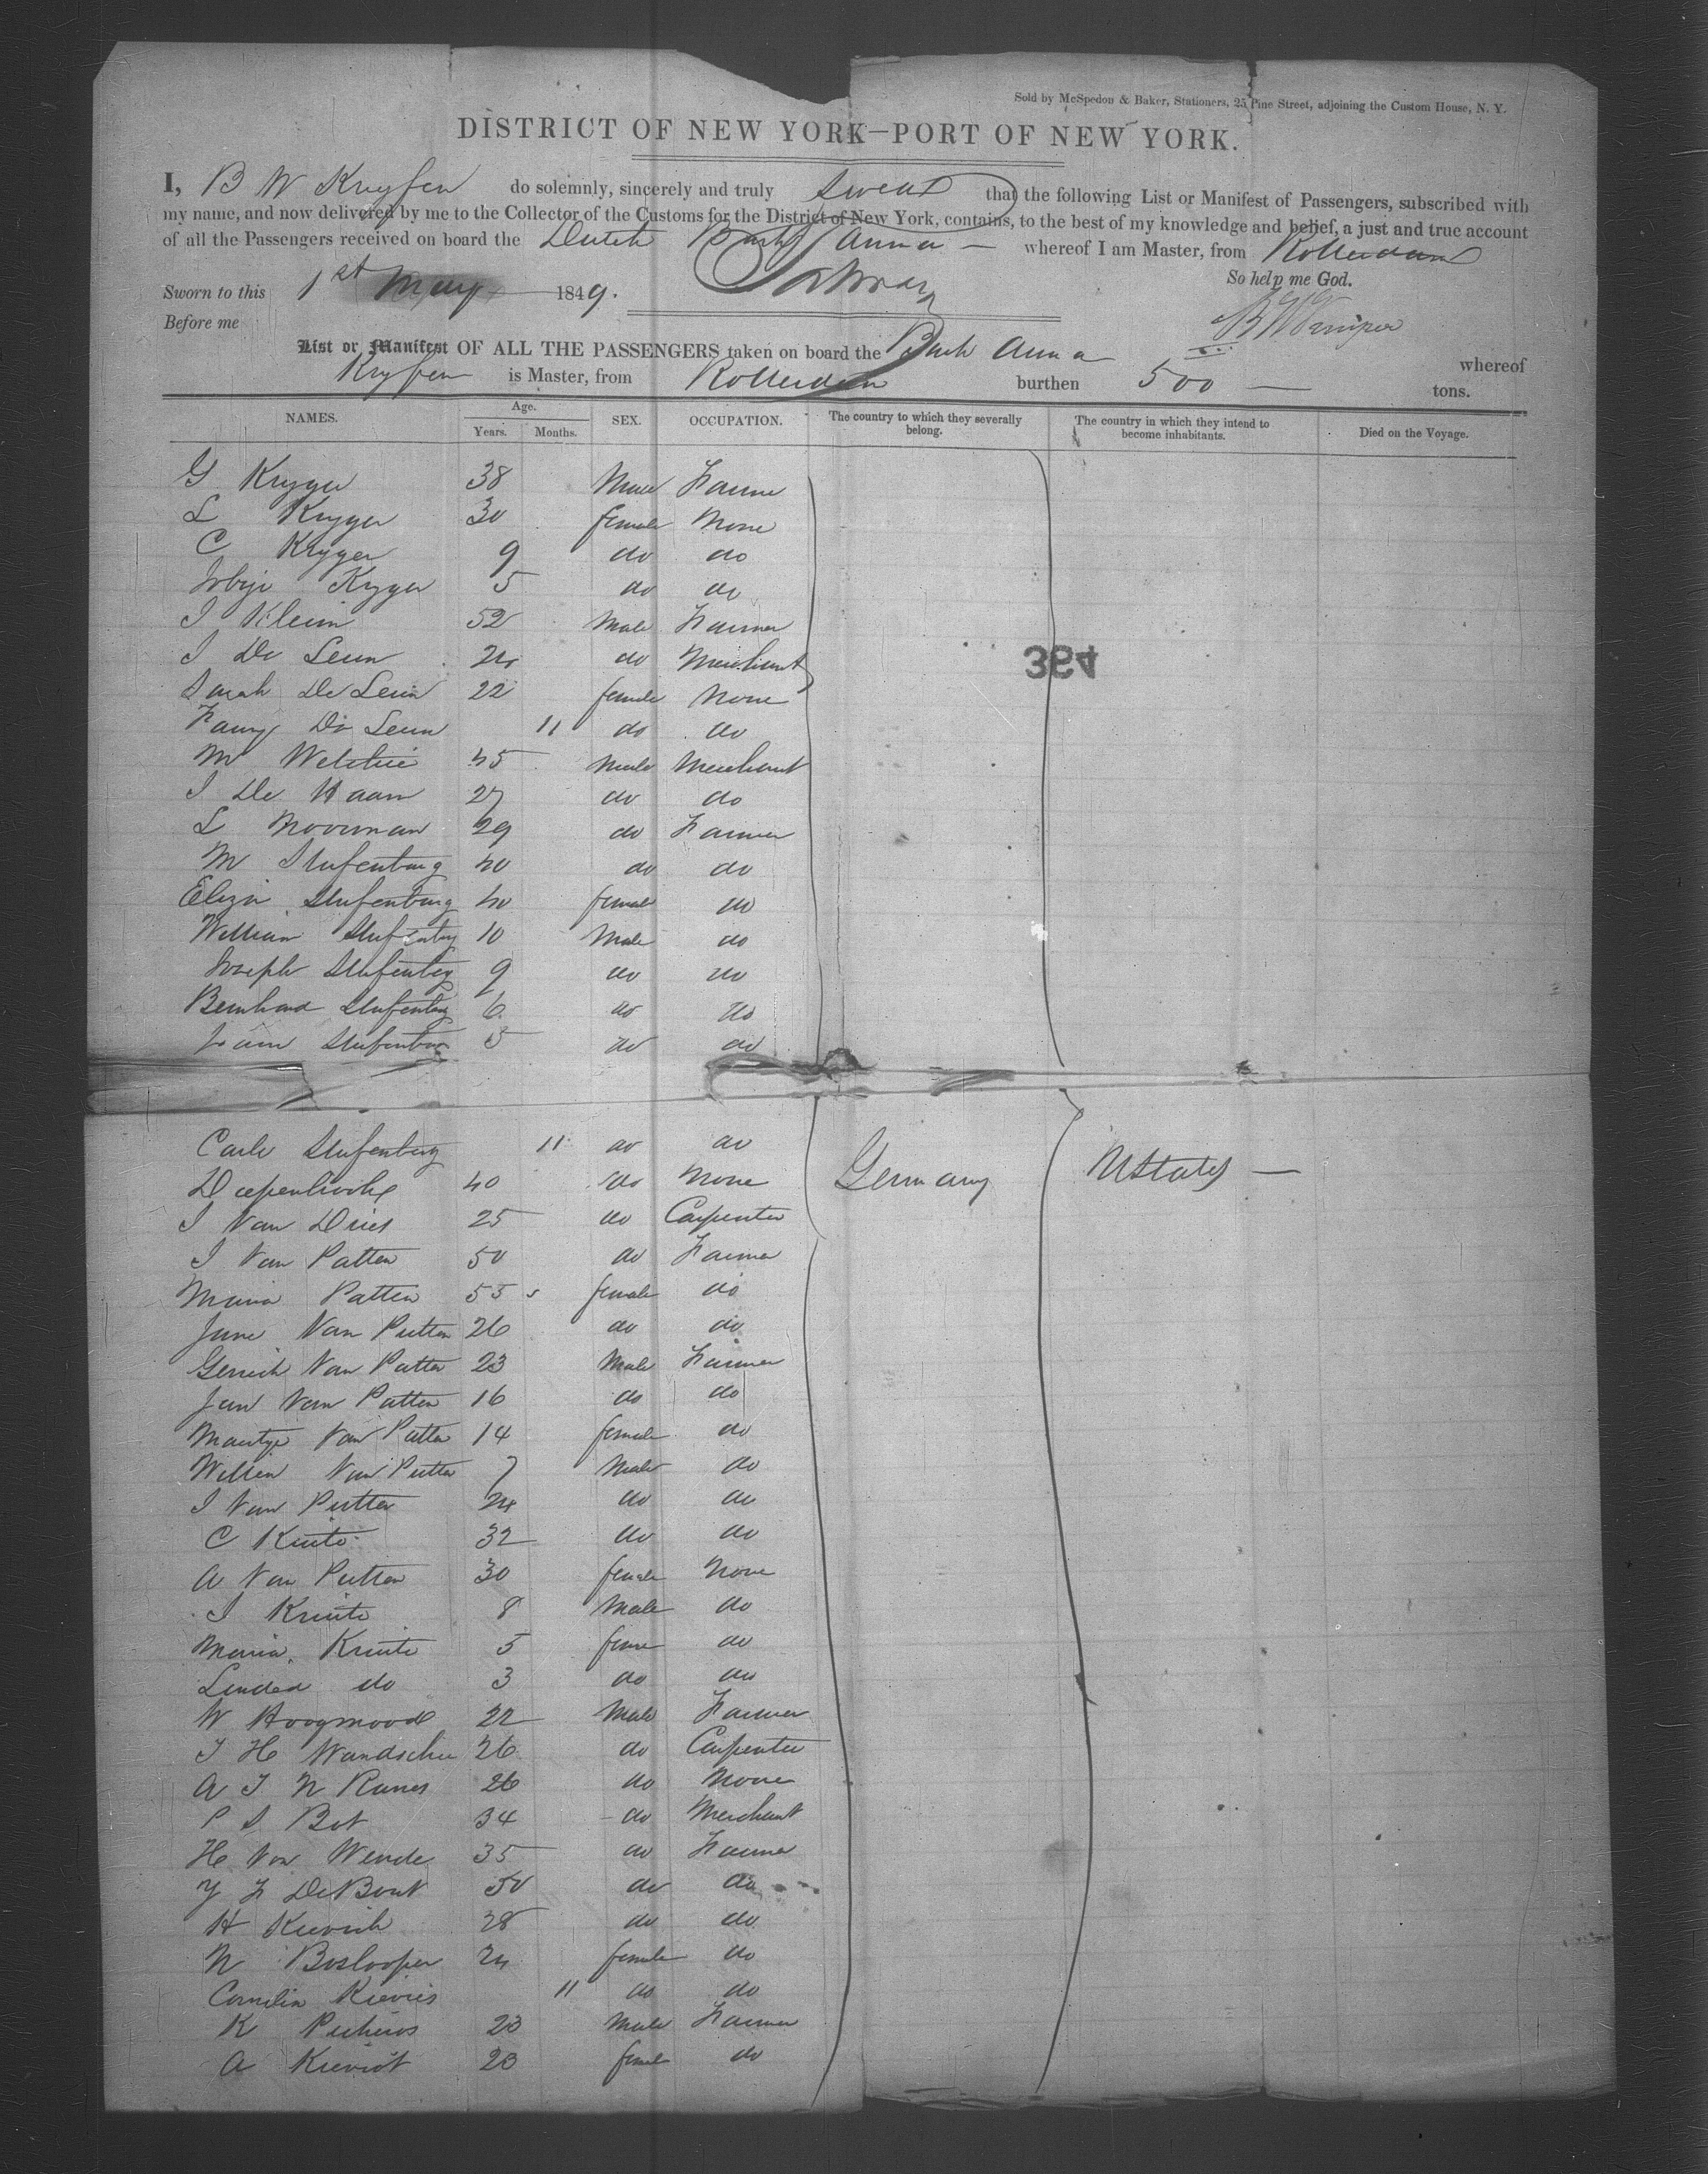 Sold by McSpedon & Baker, Stationers, 25 Pine Street, adjoining the Custom House, N. Y.
DISTRICT OF NEW YORK—PORT OF NEW YORK.
I, B W Kruysen do solemnly, sincerely and truly swear that the following List or Manifest of Passengers, subscribed with
my name, and now delivered by me to the Collector of the Customs for the District of New York, contains, to the best of my knowledge and belief, a just and true account
of all the Passengers received on board the Dutch Bark Anna — whereof I am Master, from Rotterdam
So help me God.
Sworn to this 1st May 1849.
Before me
List or Manifest OF ALL THE PASSENGERS taken on board the Bark Anna whereof
is Master, from Rotterdam burthen 500 — tons.
NAMES. Age. Years. Months. SEX. OCCUPATION. The country to which they severally belong. The country in which they intend to become inhabitants. Died on the Voyage.
G Kryger 38 Male Farmer
L Kryger 30 female None
C Kryger 9 do do
Kryger 5 do do
I Klein 52 Male Farmer
I De Leeu 24 do Merchant
Sarah De Leeu 22 female None
Fanny De Leeu 11 do do
M 45 Male Merchant
I De Haan 27 do do
L Moorman 29 do Farmer
M Stufenburg 40 do do
Eliza Stufenburg 40 female do
William Stufenburg 10 Male do
Joseph Stufenburg 9 do do
Bernhard Stufenburg 6 do do
Stufenburg 5 do do
Carle Stufenburg 11 do do
40 do None Germany UStates —
I Van Dries 25 do Carpenter
I Van Patten 50 do Farmer
Maria Patten 55 female do
Jane Van Putten 26 do do
Gerrich Van Patten 23 Male Farmer
Jan Van Patten 16 do do
Maatje Van Patten 14 female do
Willem Van Putten 7 Male do
I Van Putten 24 do do
C Kruite 32 do do
A Van Putten 30 female None
I Kruite 8 Male do
Maria Kruite 5 fem do
do 3 do do
W Hoogmoode 22 Male Farmer
J H 26 do Carpenter
A J N 26 do None
P S Bot 34 do Merchant
H Van Wende 35 do Farmer
Y F De Bout 50 do do
H 28 do do
N Boslooper 24 female do
Cornelia Kievies 11 do do
K 23 Male Farmer
A Kieviet 23 female do
364